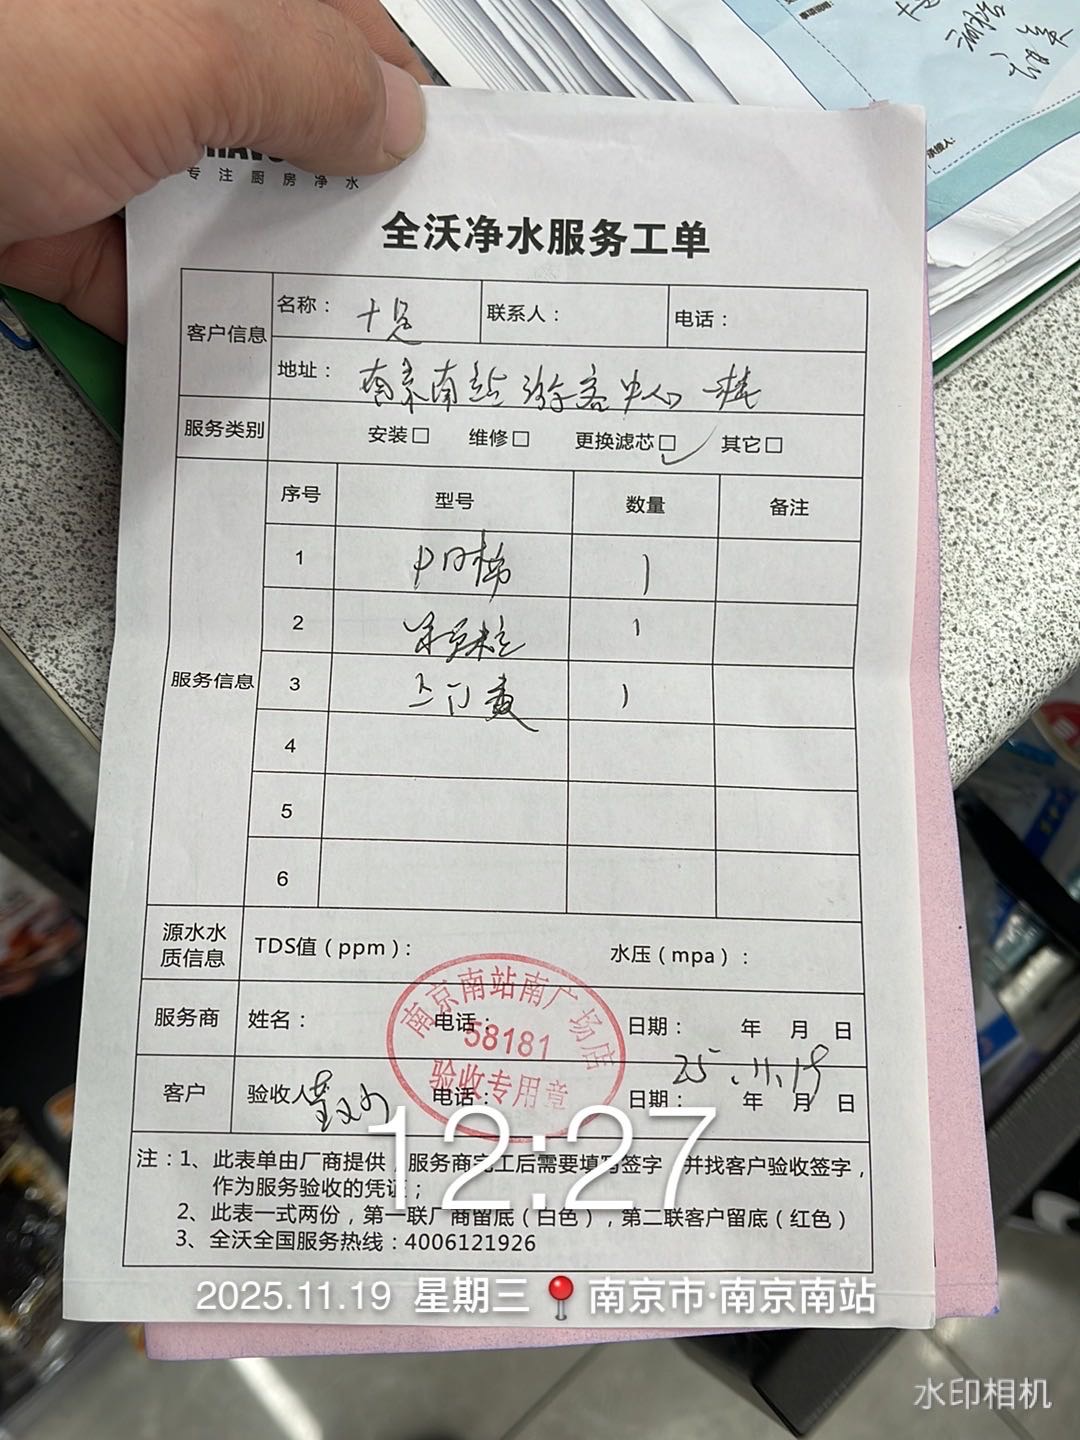 专注厨房净水
全沃净水服务工单
客户信息
名称： 十足
联系人：
电话：
地址： 南京南站游客中心一楼
服务类别
安装□ 维修□ 更换滤芯□✓ 其它□
服务信息
序号 型号 数量 备注
1 1
2 1
3 上门费 1
4
5
6
源水水质信息
TDS值（ppm）：
水压（mpa）：
服务商
姓名：
电话：
日期： 年 月 日
南京南站南广场店
58181
验收专用章
25.11.19
客户
验收人
电话：
日期： 年 月 日
注：1、此表单由厂商提供，服务商完工后需要填写签字，并找客户验收签字，
作为服务验收的凭证；
2、此表一式两份，第一联厂商留底（白色），第二联客户留底（红色）
3、全沃全国服务热线：4006121926
12:27
2025.11.19 星期三 南京市·南京南站
水印相机